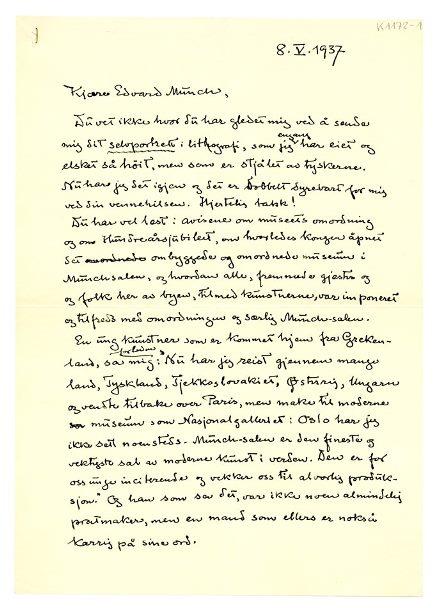 K 1172-1
8. V. 1937
Kjære Edvard Munch,
Du vet ikke hvor du har gledet mig ved å sende
mig dit selvportrett i litografi, som jeg engang har eiet og
elsket så høit, men som er stjålet av tyskerne.
Nu har jeg det igjen og det er dobbelt dyrebart for mig
ved din vennehilsen. Hjertelig takk!
Du har vel læst i avisene om museets omordning
og om Hundreårsjubileet, om hvorledes kongen åpnet
det omordnede ombyggede og omordnede museum i
Munchsalen, og hvordan alle, fremmede gjester og
og folk her av byen, til med kunstnerne, var imponeret
og tilfreds med omordningen og særlig Munch-salen.
En ung kunstner som er kommet hjem fra Grekenland,
sa forleden mig: "Nu har jeg reist gjennem mange
land, Tyskland, Tjekkoslovakiet, Østerrig, Ungarn
og vendte tilbake over Paris, men make til moderne
museum som Nasjonalgalleriet i Oslo har jeg
ikke sett noensteds. Munch-salen er den fineste og
vektigste sal av moderne kunst i verden. Den er for
oss unge inciterende og vekker oss til alvorlig produk-
sjon." Og han som sa det, var ikke noen almindelig
pratmaker, men en mand som ellers er nokså
karrig på sine ord.